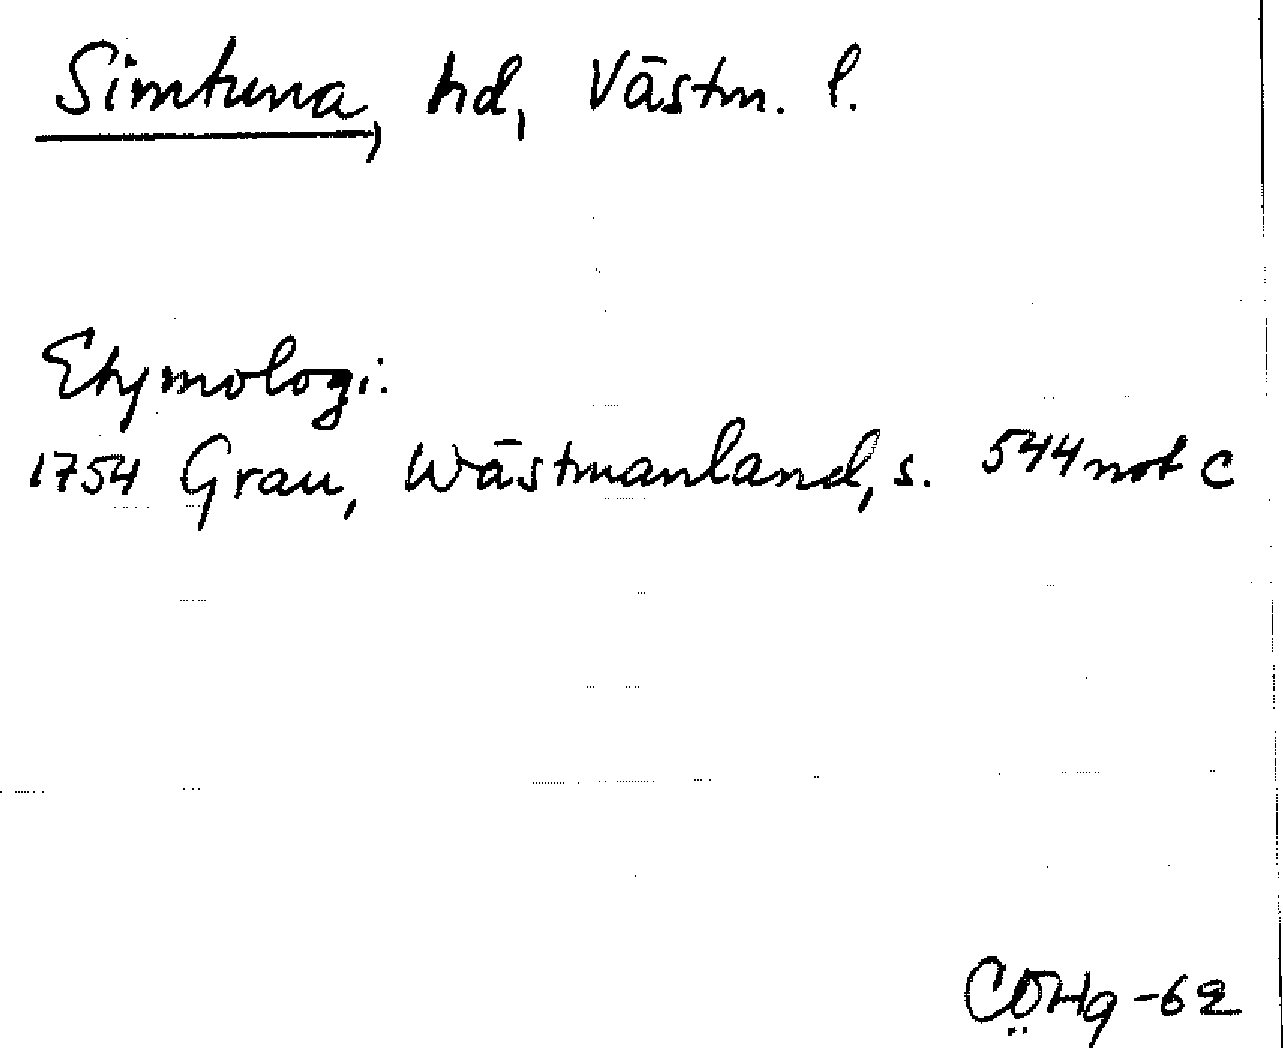 Simtuna, hd, Västm. l.
Etymologi.
1754 Grau, Wästmanland, s. 544 not c
CÖHg -62